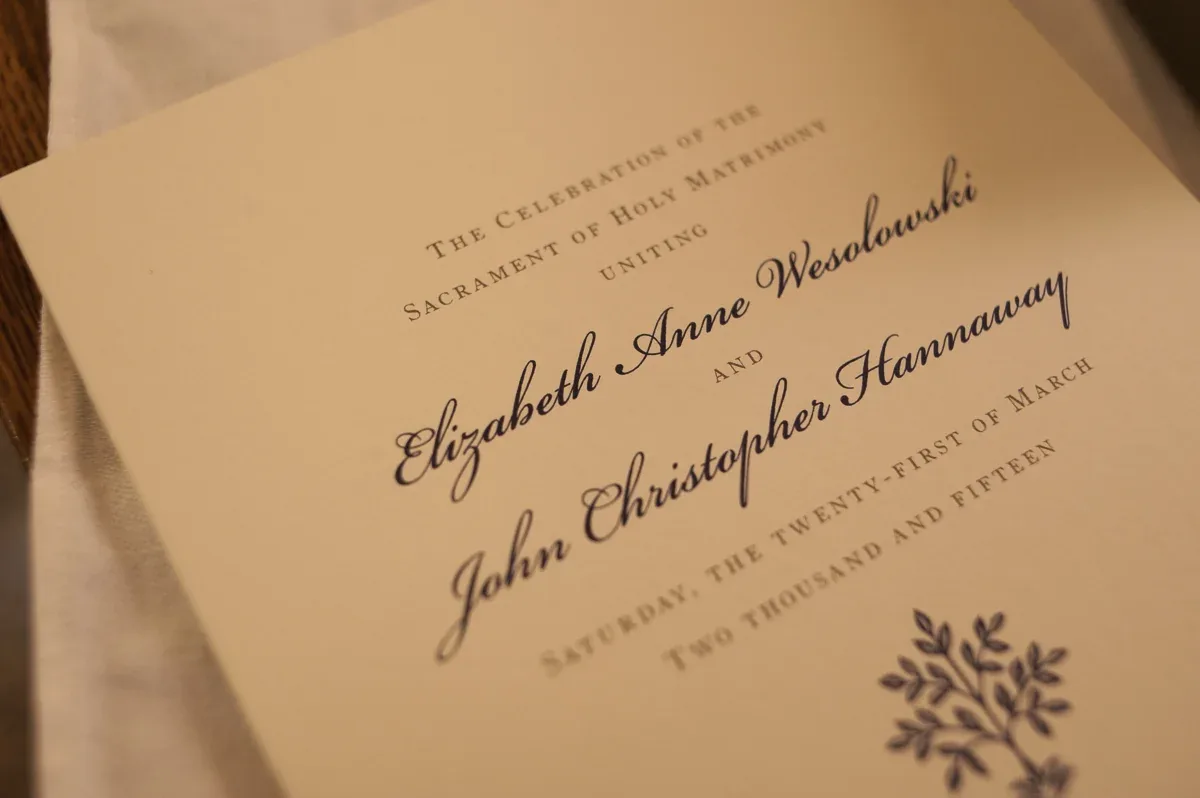 The Celebration of the
Sacrament of Holy Matrimony
uniting
Elizabeth Anne Wesolowski
and
John Christopher Hannaway
Saturday, the twenty-first of March
Two thousand and fifteen